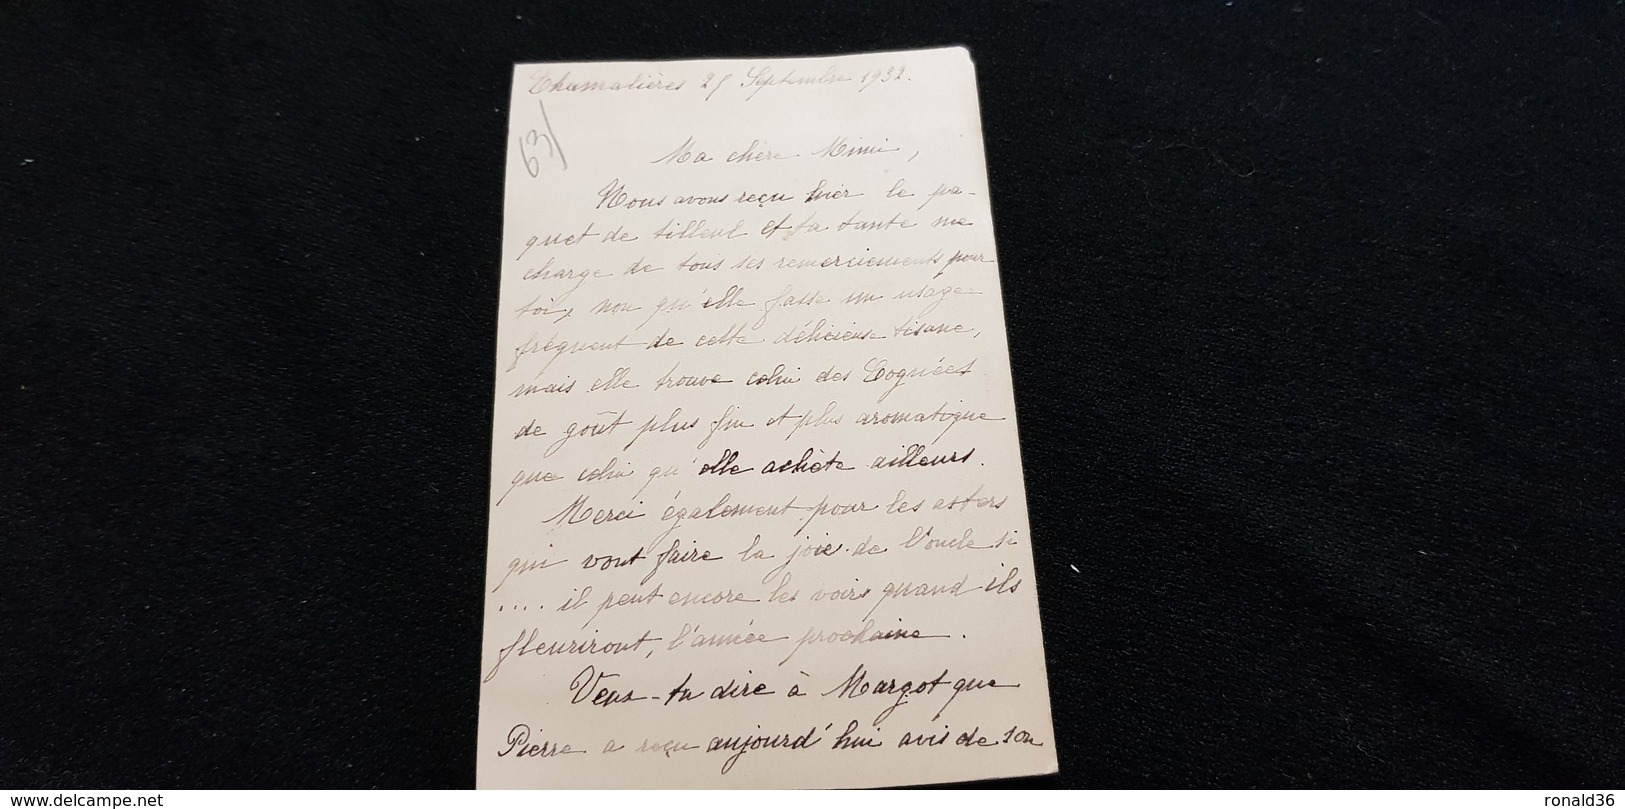 Chamalières 25 Septembre 1932.
63/
Ma chère Mimi,
Nous avons reçu hier le pa-
quet de tilleul et ta tante me
charge de tous ses remerciements pour
toi, non qu'elle fasse un usage
fréquent de cette délicieuse tisane,
mais elle trouve celui des Cognées
de goût plus fin et plus aromatique
que celui qu'elle achète ailleurs.
Merci également pour les asters
qui vont faire la joie de l'oncle si
.... il peut encore les voir quand ils
fleuriront, l'année prochaine.
Veux-tu dire à Margot que
Pierre a reçu aujourd'hui avis de son
www.delcampe.net
ronald36